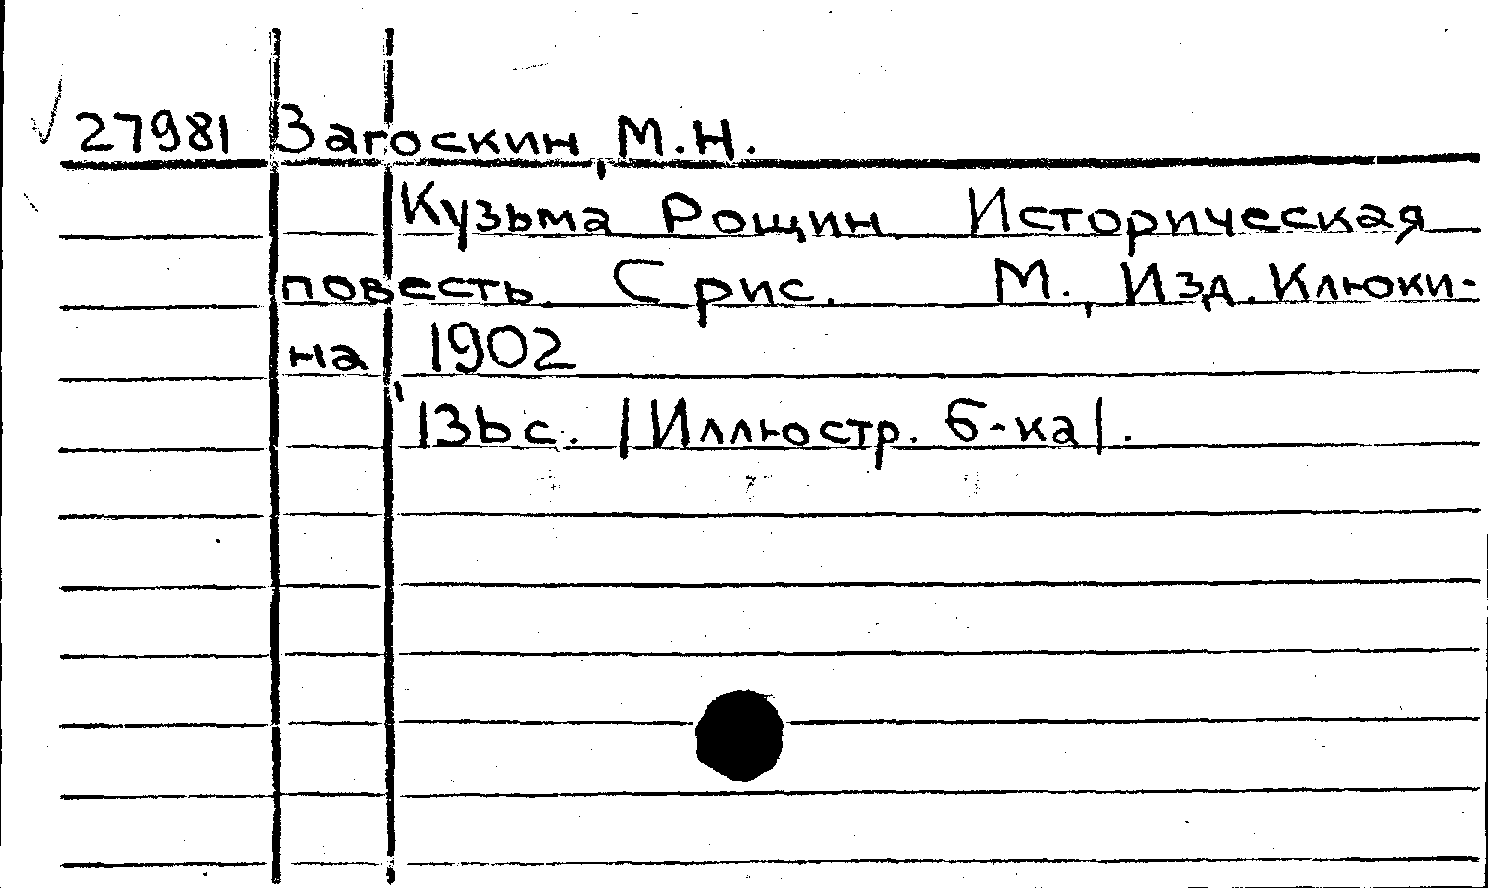 27981 Загоскин, М.Н.
Кузьма Рощин Историческая
повесть. С рис. М., Изд. Клюки-
на, 1902
136 с. |Иллюстр. б-ка|.